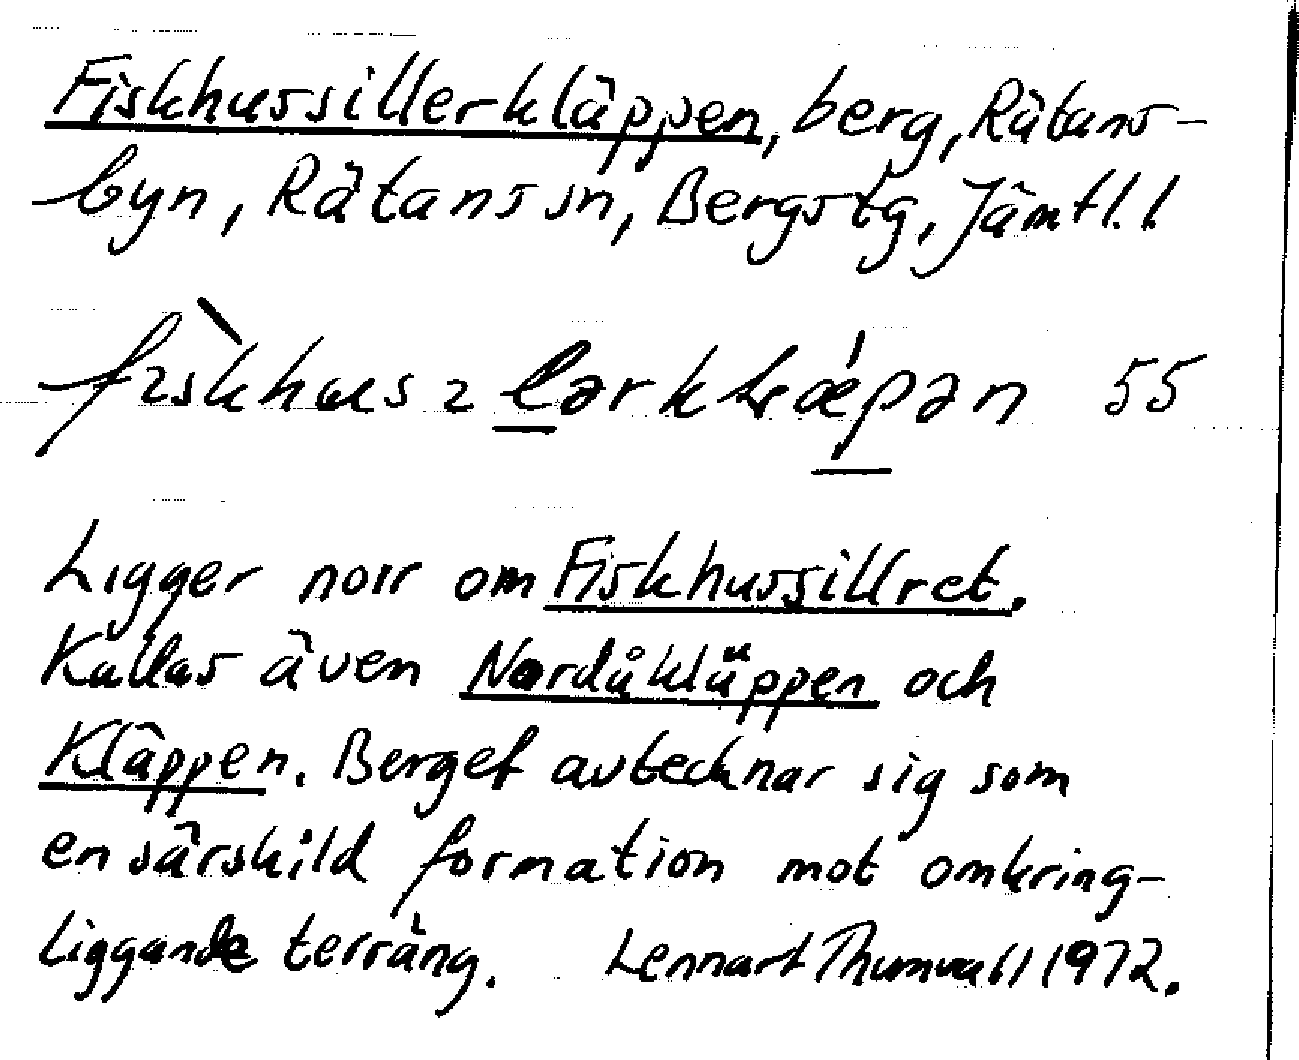 Fiskhussillerkläppen, berg, Rätans-
byn, Rätans sn, Bergs tg, Jämtl. l.
55
Ligger norr om Fiskhussillret.
Kallas även Nordåkläppen och
Kläppen. Berget avtecknar sig som
en särskild formation mot omkring-
liggande terräng. Lennart Thunwall 1972.